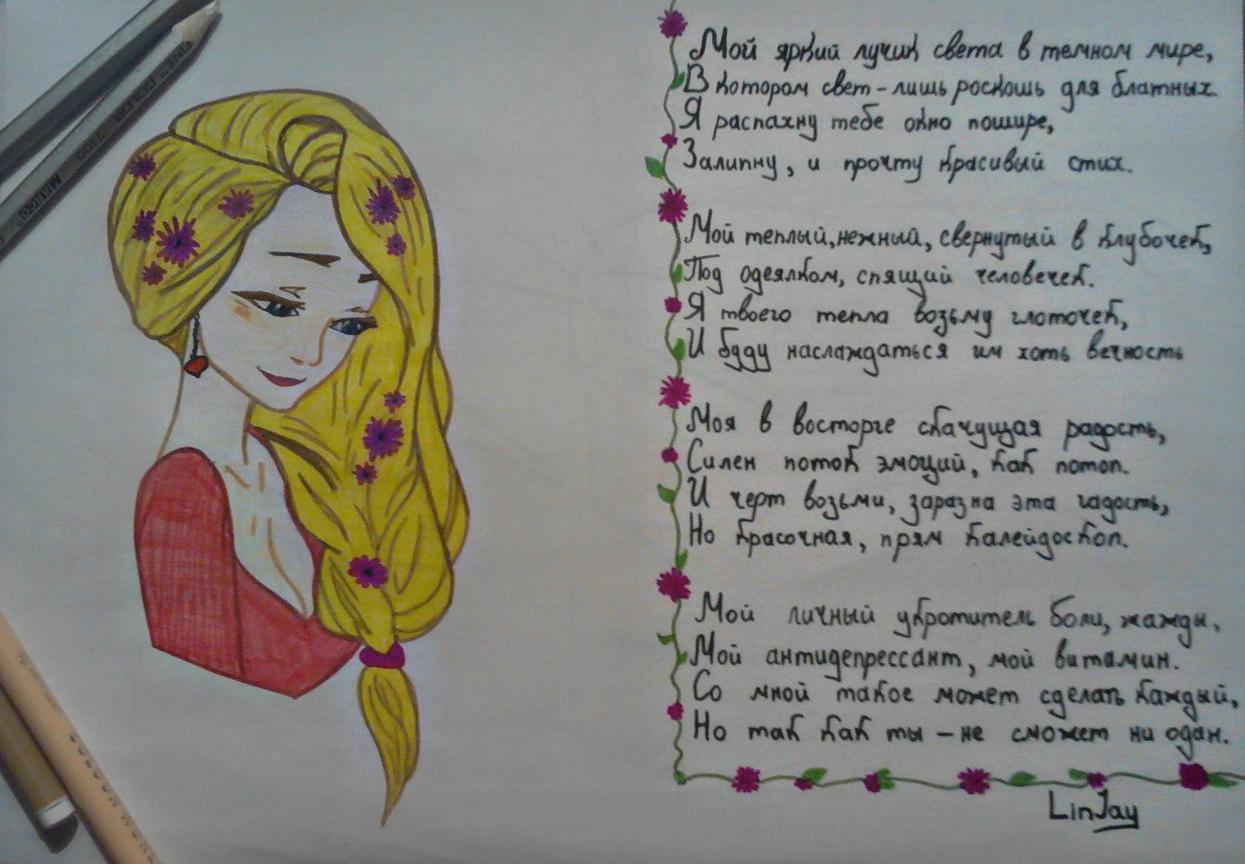 Мой яркий лучик света в темном мире,
В котором свет - лишь роскошь для блатных.
Я распахну тебе окно пошире,
Залипну, и прочту красивый стих.
Мой теплый, нежный, свернутый в клубочек,
Под одеялком, спящий человечек.
Я твоего тепла возьму глоточек,
И буду наслаждаться им хоть вечность
Моя в восторге скачущая радость,
Силен поток эмоций, как потоп.
И черт возьми, заразна эта гадость,
Но красочная, прям калейдоскоп.
Мой личный укротитель боли, жажды,
Мой антидепрессант, мой витамин.
Со мной такое может сделать каждый,
Но так как ты - не сможет ни один.
LinJay
FINE COLOUR 7100
MARCO